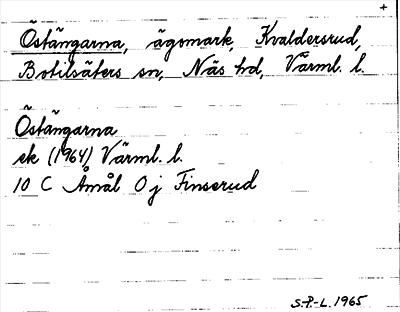 +
Östängarna, ägomark, Kvaldersrud,
Botilsäters sn, Näs hd, Värml. l.
Östängarna
ek (1964) Värml. l.
10 C Åmål O j Finserud
S.P.-L. 1965